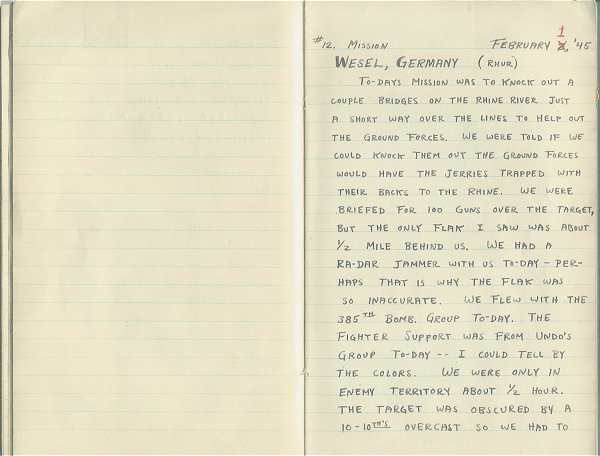 #12. MISSION FEBRUARY 1, '45
WESEL, GERMANY (RHUR)
TO-DAYS MISSION WAS TO KNOCK OUT A
COUPLE BRIDGES ON THE RHINE RIVER JUST
A SHORT WAY OVER THE LINES TO HELP OUT
THE GROUND FORCES. WE WERE TOLD IF WE
COULD KNOCK THEM OUT THE GROUND FORCES
WOULD HAVE THE JERRIES TRAPPED WITH
THEIR BACKS TO THE RHINE. WE WERE
BRIEFED FOR 100 GUNS OVER THE TARGET,
BUT THE ONLY FLAK I SAW WAS ABOUT
1/2 MILE BEHIND US. WE HAD A
RA-DAR JAMMER WITH US TO-DAY - PER-
HAPS THAT IS WHY THE FLAK WAS
SO INACCURATE. WE FLEW WITH THE
385TH BOMB. GROUP TO-DAY. THE
FIGHTER SUPPORT WAS FROM UNDO'S
GROUP TO-DAY -- I COULD TELL BY
THE COLORS. WE WERE ONLY IN
ENEMY TERRITORY ABOUT 1/2 HOUR.
THE TARGET WAS OBSCURED BY A
10-10TH'S OVERCAST SO WE HAD TO